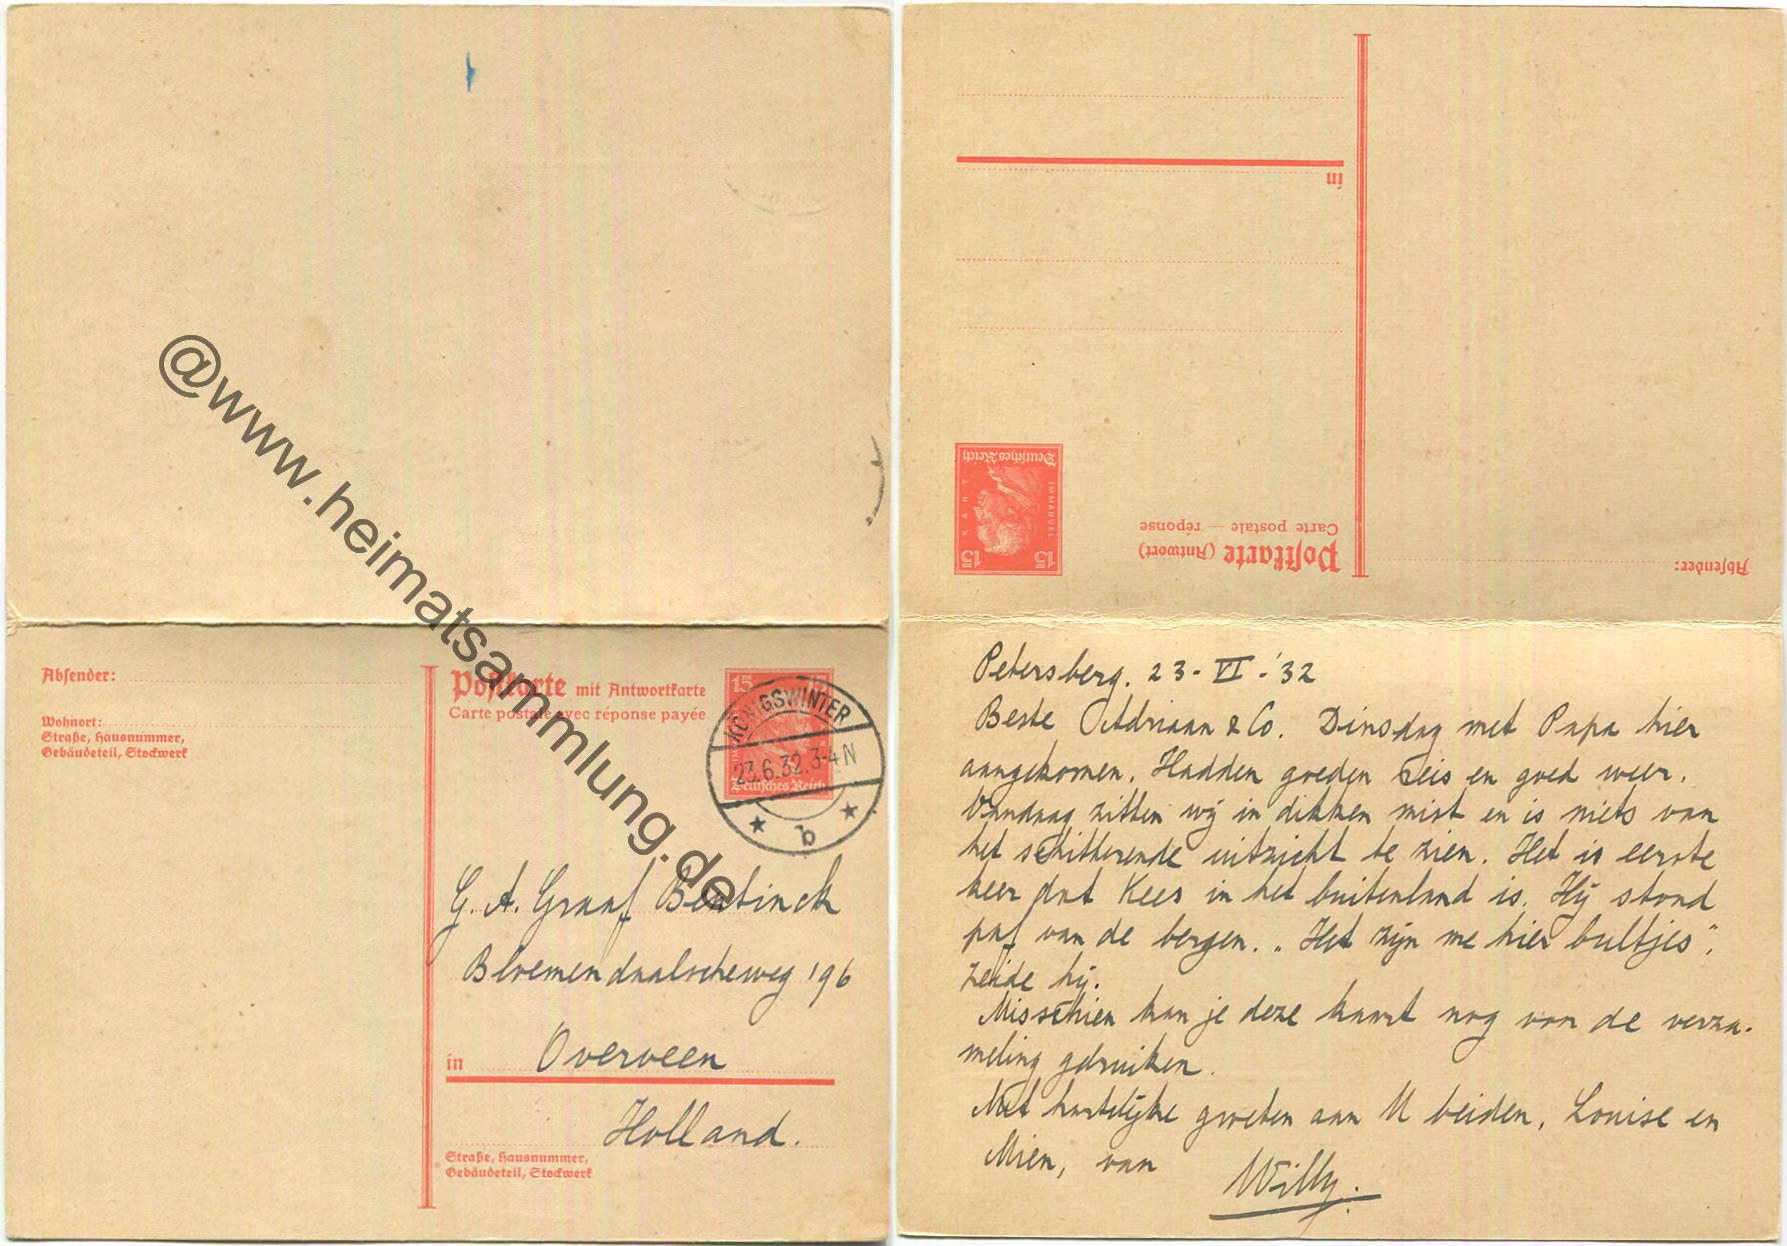 @www.heimatsammlung.de
Absender:
Wohnort:
Straße, Hausnummer,
Gebäudeteil, Stockwerk
Postkarte mit Antwortkarte
Carte postale avec réponse payée
15 15
Deutsches Reich
KÖNIGSWINTER
23.6.32.3-4N
★ b ★
G. A. Graaf Bentinck
Bloemendaalscheweg 196
in Overveen
Holland.
Straße, Hausnummer,
Gebäudeteil, Stockwerk
in
Deutsches Reich
IMMANUEL KANT
15 15
Postkarte (Antwort)
Carte postale — réponse
Absender:
Petersberg. 23-VI-'32
Beste Adriaan & Co. Dinsdag met Papa hier
aangekomen. Hadden goeden reis en goed weer.
Vandaag zitten wij in dikken mist en is niets van
het schitterende uitzicht te zien. Het is eerste
keer dat Kees in het buitenland is. Hij stond
paf van de bergen. „Het zijn me hier bultjes”,
zeide hij.
Misschien kan je deze kaart nog voor de verza-
meling gebruiken.
Met hartelijke groeten aan U beiden, Louise en
Mien, van
Willy.